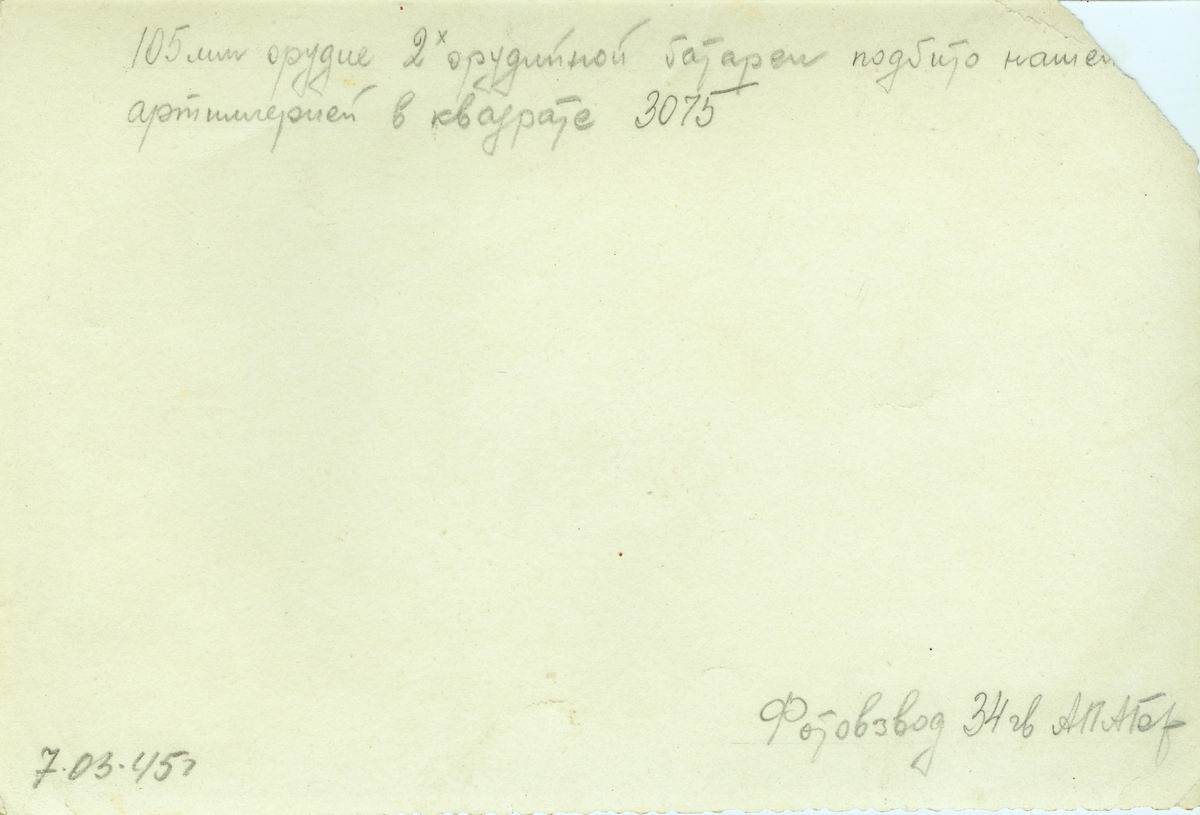 105мм орудие 2х орудийной батареи подбито нашей
артиллерией в квадрате 3075
Фотовзвод 34 гв АПАБр
7.03.45г